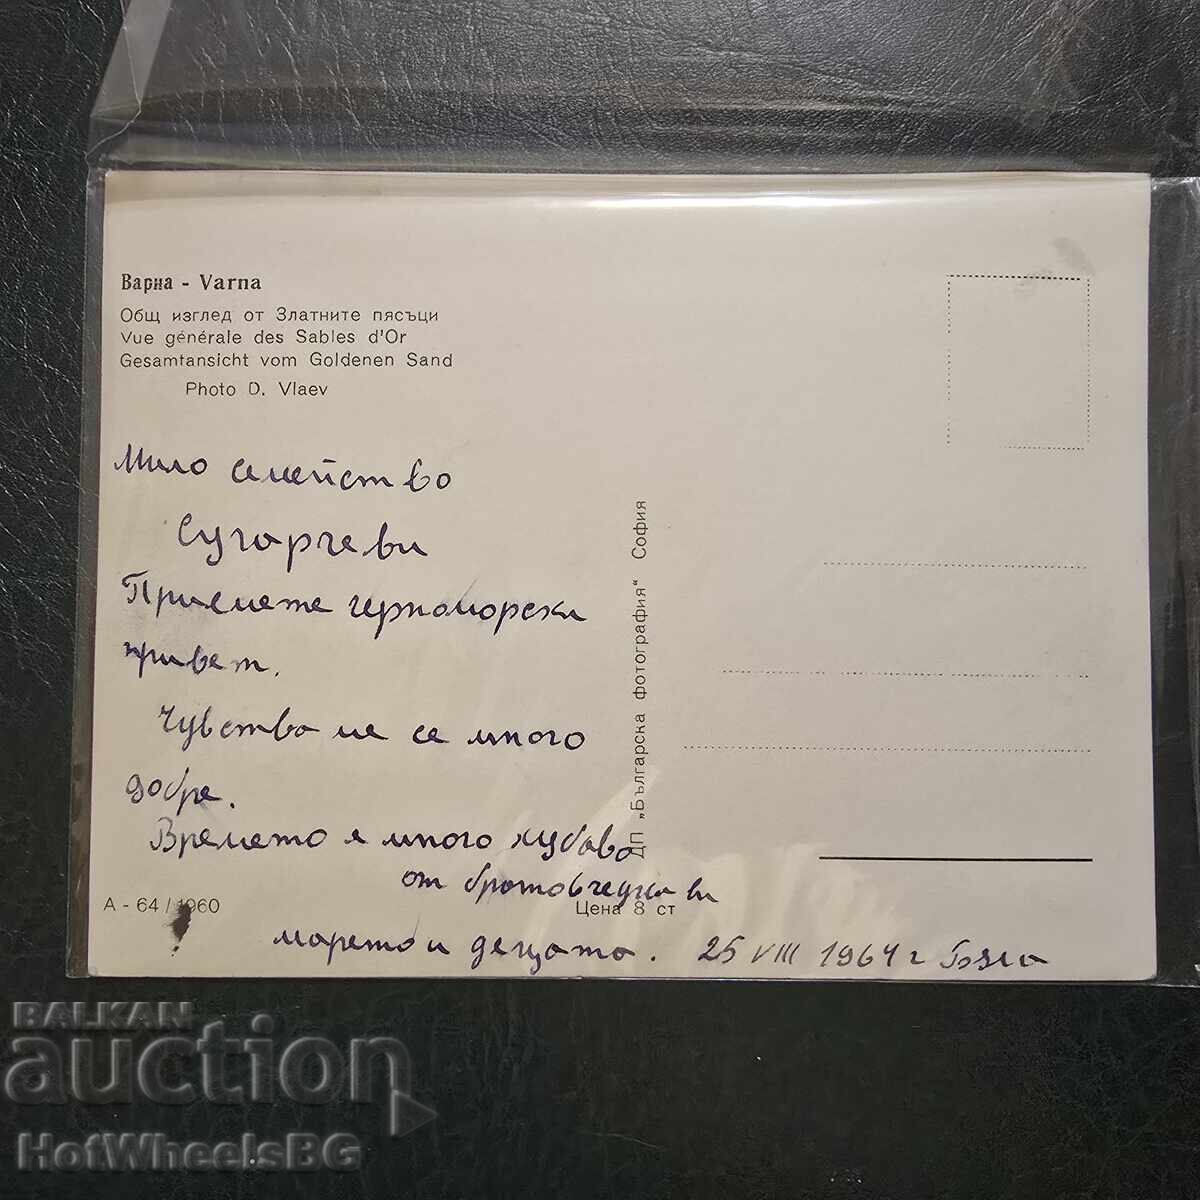 Варна - Varna
Общ изглед от Златните пясъци
Vue générale des Sables d'Or
Gesamtansicht vom Goldenen Sand
Photo D. Vlaev
Мило семейство
Сугарчеви
Приемете черноморски
привет.
Чувстваме се много
добре.
Времето я много хубаво
от братовчедка ви
морето и децата. 25 VIII 1964 г
А - 64 / 1960
Цена 8 ст
ДП „Българска фотография" София
BALKAN
auction
HotWheelsBG